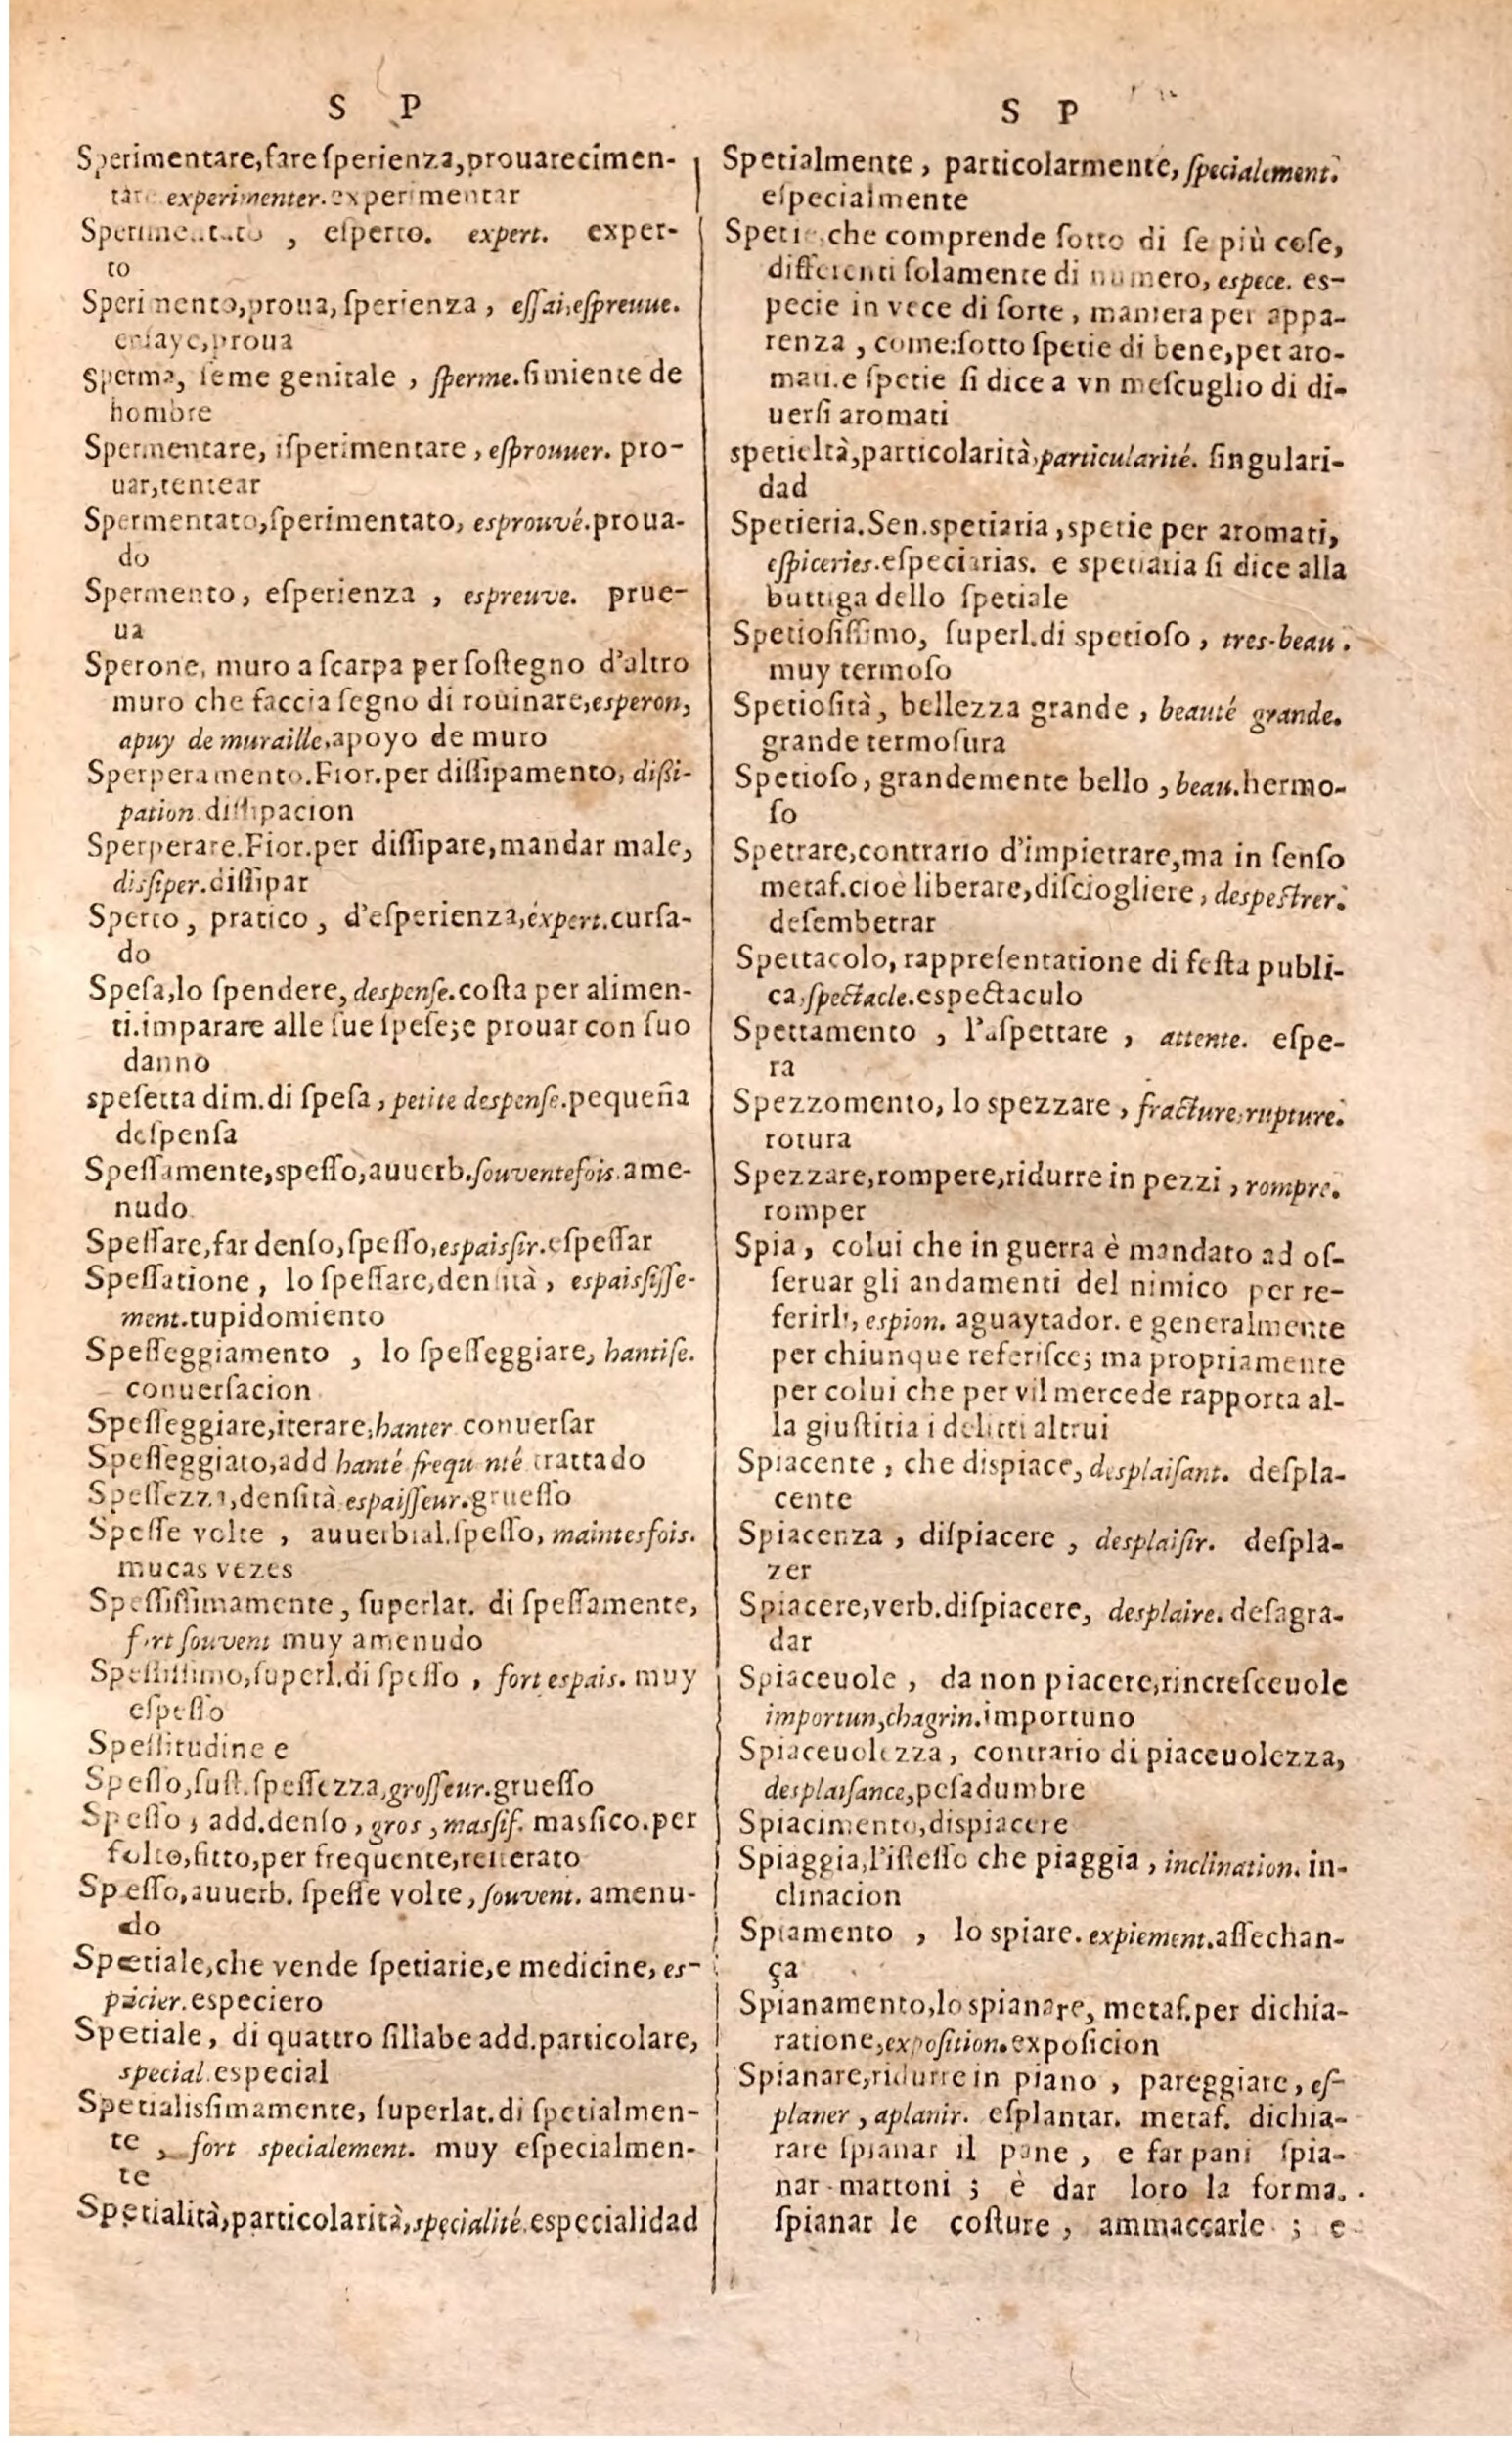 S P
Sperimentare,fare ſperienza,prouare cimen-
tare experimenter.experimentar
Sperimentato , eſperto. expert. exper-
to
Sperimento,proua, ſperienza , eſſai,eſpreuue.
enſaye,proua
Sperma, ſeme genitale , ſperme.ſimiente de
hombre
Spermentare, iſperimentare , eſprouuer. pro-
uar,tentear
Spermentato,ſperimentato, esprouvé.proua-
do
Spermento, eſperienza , espreuve. prue-
ua
Sperone, muro a ſcarpa per ſoſtegno d'altro
muro che faccia ſegno di rouinare,esperon,
apuy de muraille,apoyo de muro
Sperperamento.Fior.per diſſipamento, dißi-
pation.diſſipacion
Sperperare.Fior.per diſſipare,mandar male,
disſiper.diſſipar
Sperto , pratico , d'eſperienza,éxpert.curſa-
do
Speſa,lo ſpendere, despenſe.coſta per alimen-
ti.imparare alle ſue ſpeſe;e prouar con ſuo
danno
speſetta dim.di ſpeſa , petite despenſe.pequeña
deſpenſa
Speſſamente,speſſo,auuerb.ſouventefois.ame-
nudo
Speſſare,far denſo,ſpeſſo,espaisſir.eſpeſſar
Speſſatione , lo ſpeſſare,denſità , espaisſiſſe-
ment.tupidomiento
Speſſeggiamento , lo ſpeſſeggiare, hantiſe.
conuerſacion
Speſſeggiare,iterare,hanter conuerſar
Speſſeggiato,add hanté frequenté trattado
Speſſezza,denſità espaiſſeur.grueſſo
Speſſe volte , auuerbial.ſpeſſo, maintesfois.
mucas vezes
Speſſiſſimamente , ſuperlat. di ſpeſſamente,
fort ſouvent muy amenudo
Speſſiſſimo,ſuperl.di ſpeſſo , fort espais. muy
eſpeſſo
Speſſitudine e
Speſſo,ſuſt.ſpeſſezza,groſſeur.grueſſo
Speſſo , add.denſo , gros , masſif. masſico.per
folto,fitto,per frequente,reiterato
Speſſo,auuerb. ſpeſſe volte , ſouvent. amenu-
do
Spetiale,che vende ſpetiarie,e medicine, es-
picier.especiero
Spetiale, di quattro ſillabe add.particolare,
special.especial
Spetialisſimamente, ſuperlat.di ſpetialmen-
te , fort specialement. muy eſpecialmen-
te
Spetialità,particolarità,specialité.especialidad
S P
Spetialmente , particolarmente, ſpecialement.
eſpecialmente
Spetie,che comprende ſotto di ſe più coſe,
differenti ſolamente di numero, espece. es-
pecie in vece di ſorte , maniera per appa-
renza , come:ſotto ſpetie di bene,per aro-
mati.e ſpetie ſi dice a vn meſcuglio di di-
uerſi aromati
spetieltà,particolarità,particularité. ſingulari-
dad
Spetieria.Sen.spetiaria ,spetie per aromati,
eſpiceries.eſpeciarias. e spetiaria ſi dice alla
buttiga dello ſpetiale
Spetioſiſſimo, ſuperl.di spetioſo , tres-beau .
muy termoſo
Spetioſità, bellezza grande , beauté grande.
grande termoſura
Spetioſo, grandemente bello , beau.hermo-
ſo
Spetrare,contrario d'impietrare,ma in ſenſo
metaf.cioè liberare,diſciogliere , despeſtrer.
deſembetrar
Spettacolo, rappreſentatione di feſta publi-
ca,ſpectacle.espectaculo
Spettamento , l'aſpettare , attente. eſpe-
ra
Spezzomento, lo spezzare , fracture,rupture.
rotura
Spezzare,rompere,ridurre in pezzi , rompre.
romper
Spia , colui che in guerra è mandato ad oſ-
ſeruar gli andamenti del nimico per re-
ferirli, espion. aguaytador. e generalmente
per chiunque referiſce; ma propriamente
per colui che per vil mercede rapporta al-
la giuſtitia i delitti altrui
Spiacente , che dispiace, desplaiſant. deſpla-
cente
Spiacenza , diſpiacere , desplaiſir. deſpla-
zer
Spiacere,verb.diſpiacere, desplaire. deſagra-
dar
Spiaceuole , da non piacere,rincreſceuole
importun,chagrin.importuno
Spiaceuolezza , contrario di piaceuolezza,
desplaiſance,peſadumbre
Spiacimento,dispiacere
Spiaggia,l'iſteſſo che piaggia , inclination. in-
clinacion
Spiamento , lo spiare. expiement.aſſechan-
ça
Spianamento,lo spianare, metaf.per dichia-
ratione,expoſition.expoſicion
Spianare,ridurre in piano , pareggiare, eſ-
planer , aplanir. eſplantar. metaf. dichia-
rare ſpianar il pane , e far pani ſpia-
nar mattoni ; è dar loro la forma.
ſpianar le coſture , ammaccarle ; e